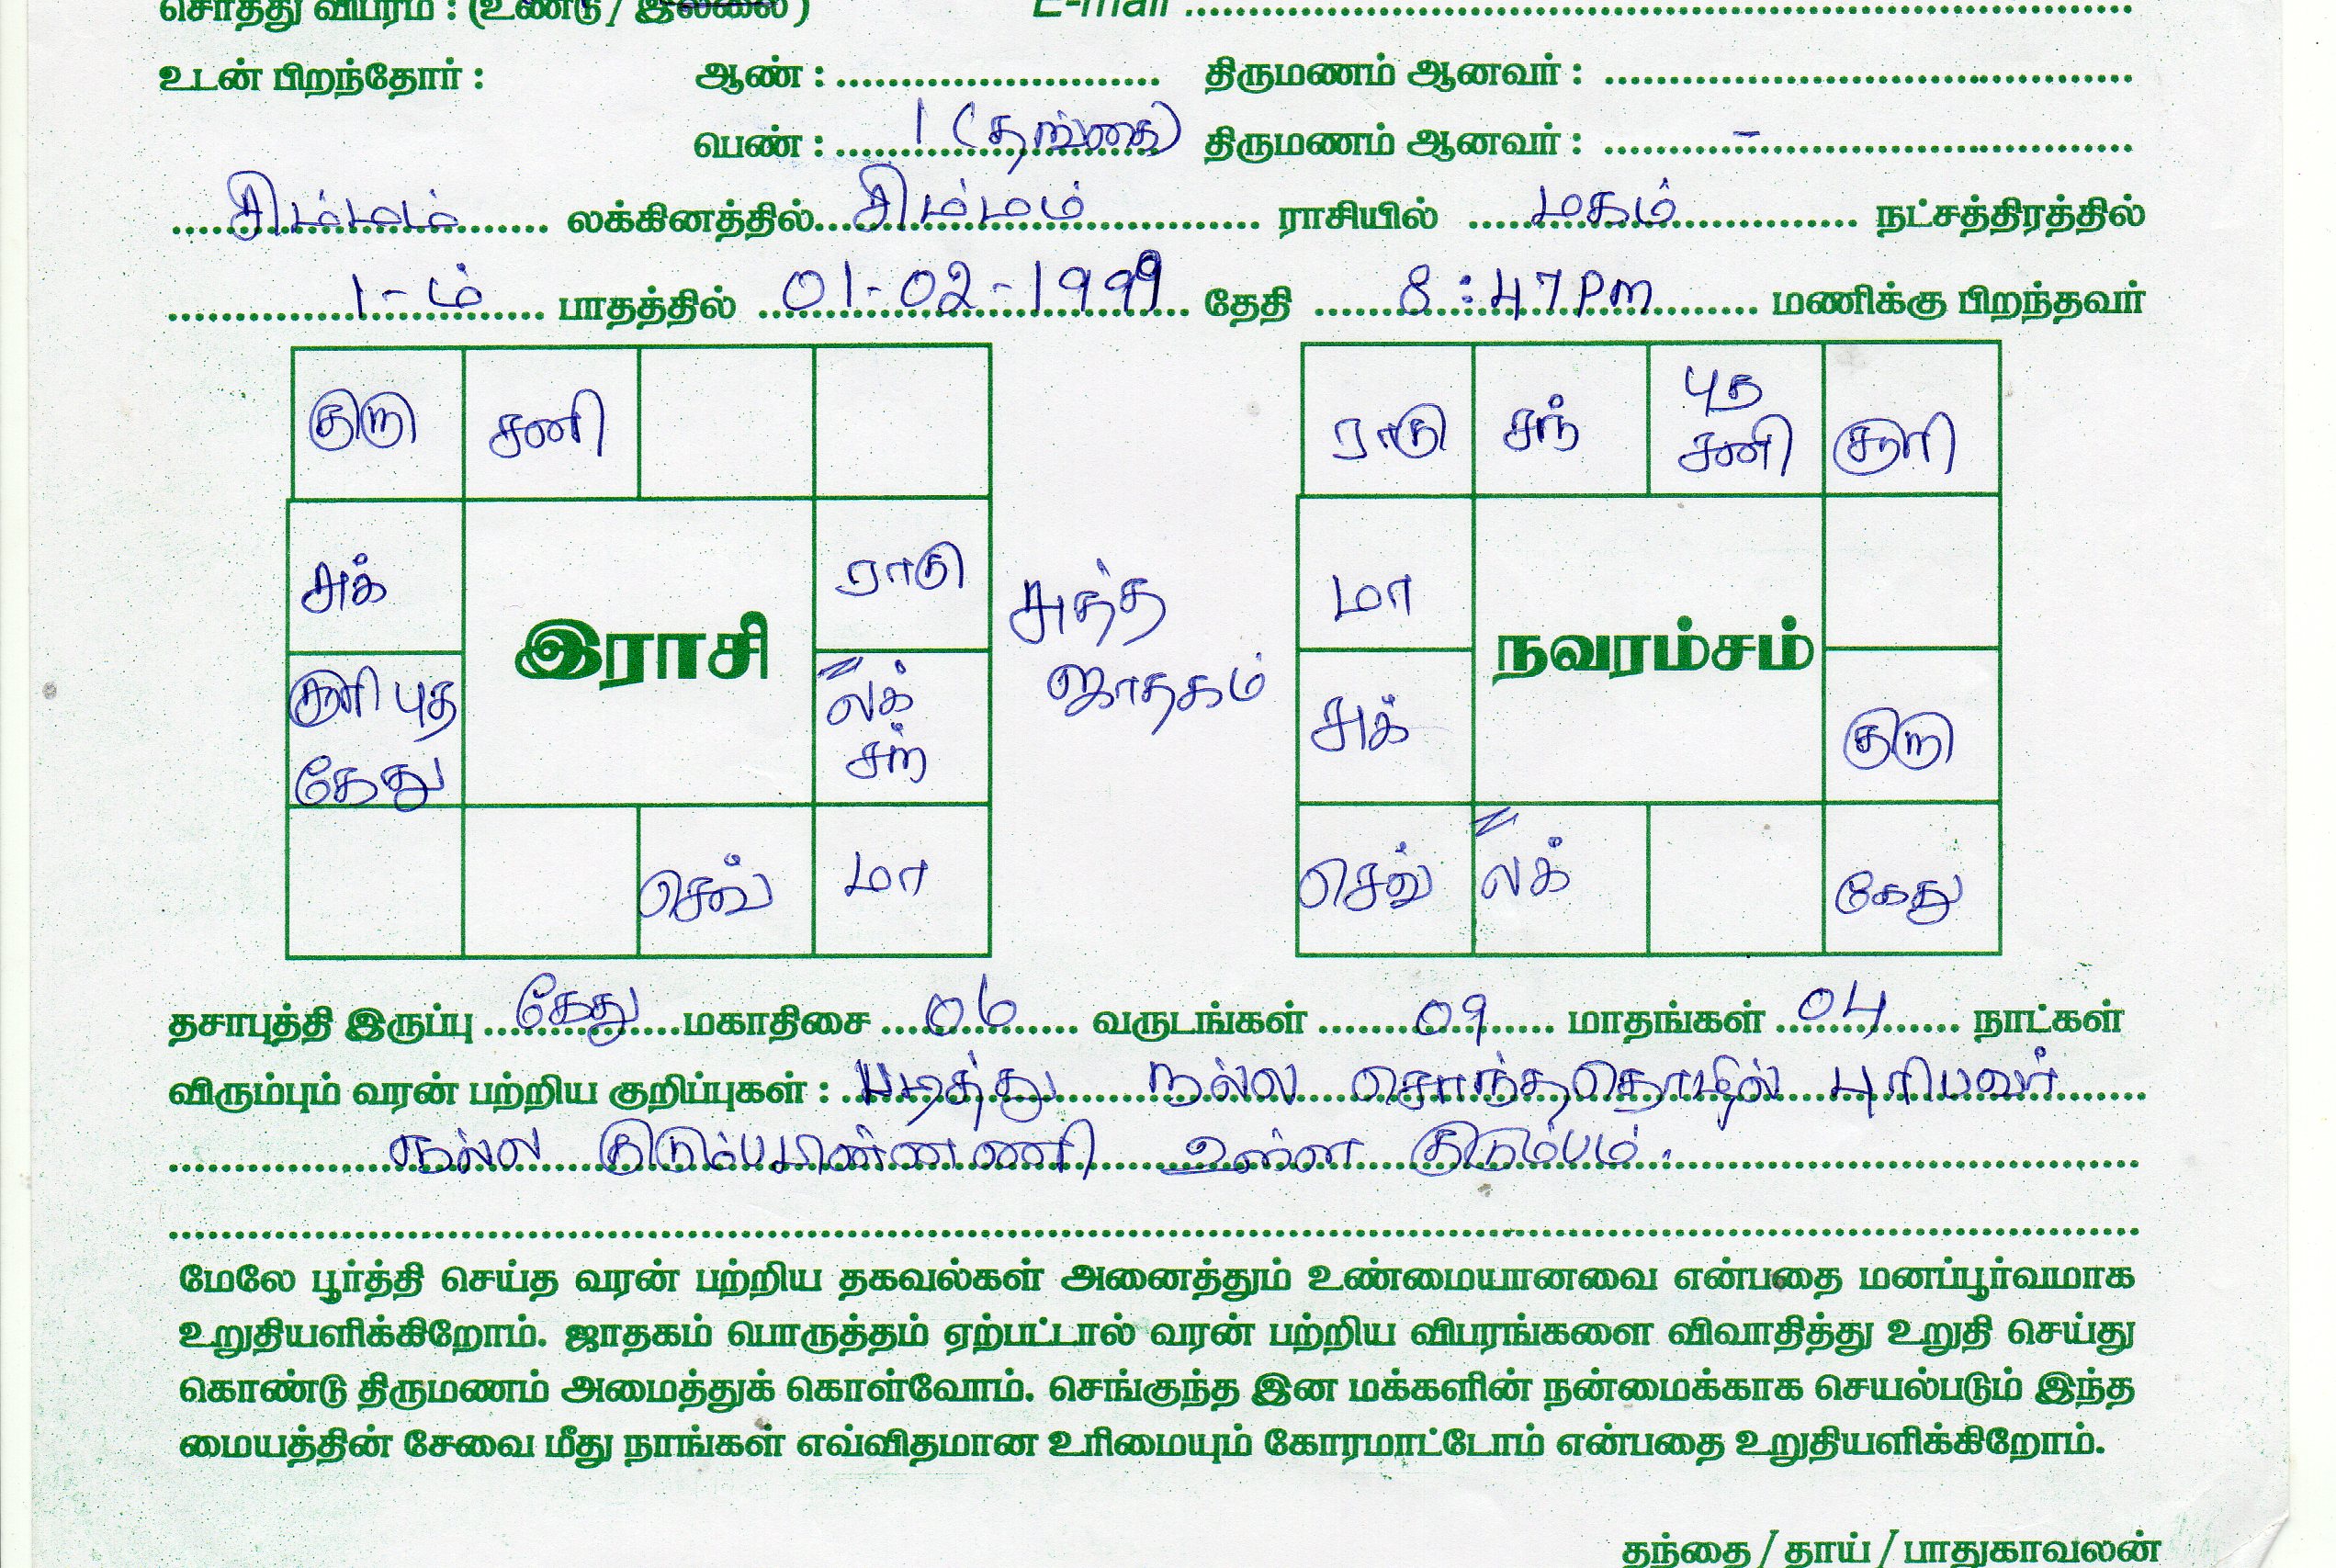 சொத்து விபரம் : (உண்டு / இல்லை) E-mail
உடன் பிறந்தோர் : ஆண் : திருமணம் ஆனவர் :
பெண் : 1 (தங்கை) திருமணம் ஆனவர் : -
சிம்மம் லக்கினத்தில் சிம்மம் ராசியில் மகம் நட்சத்திரத்தில்
1-ம் பாதத்தில் 01-02-1999 தேதி 8:47 Pm மணிக்கு பிறந்தவர்
குரு சனி ராகு சந் புத சனி சூரி
சுக் இராசி ராகு சுத்த ஜாதகம் மா நவரம்சம்
சூரி புத கேது லக் சந் சுக் குரு
செவ் மா செவ் லக் கேது
தசாபுத்தி இருப்பு கேது மகாதிசை 06 வருடங்கள் 09 மாதங்கள் 04 நாட்கள்
விரும்பும் வரன் பற்றிய குறிப்புகள் : படித்து நல்ல சொந்ததொழில் புரிபவர்
நல்ல குடும்பபிண்ணணி உள்ள குடும்பம்.
மேலே பூர்த்தி செய்த வரன் பற்றிய தகவல்கள் அனைத்தும் உண்மையானவை என்பதை மனப்பூர்வமாக
உறுதியளிக்கிறோம். ஜாதகம் பொருத்தம் ஏற்பட்டால் வரன் பற்றிய விபரங்களை விவாதித்து உறுதி செய்து
கொண்டு திருமணம் அமைத்துக் கொள்வோம். செங்குந்த இன மக்களின் நன்மைக்காக செயல்படும் இந்த
மையத்தின் சேவை மீது நாங்கள் எவ்விதமான உரிமையும் கோரமாட்டோம் என்பதை உறுதியளிக்கிறோம்.
தந்தை / தாய் / பாதுகாவலன்